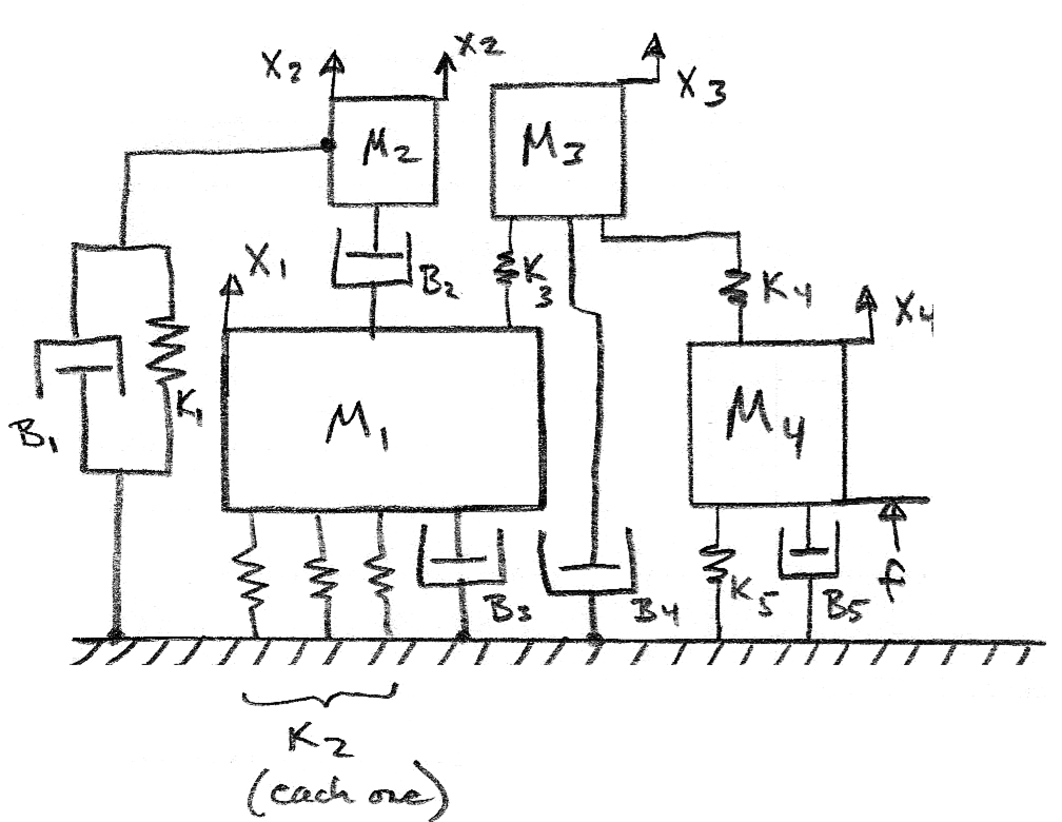 X2
X2
X3
M2
M3
X1
B2
K3
K4
X4
B1
K1
M1
M4
B3
B4
K5
B5
f
K2
(each one)